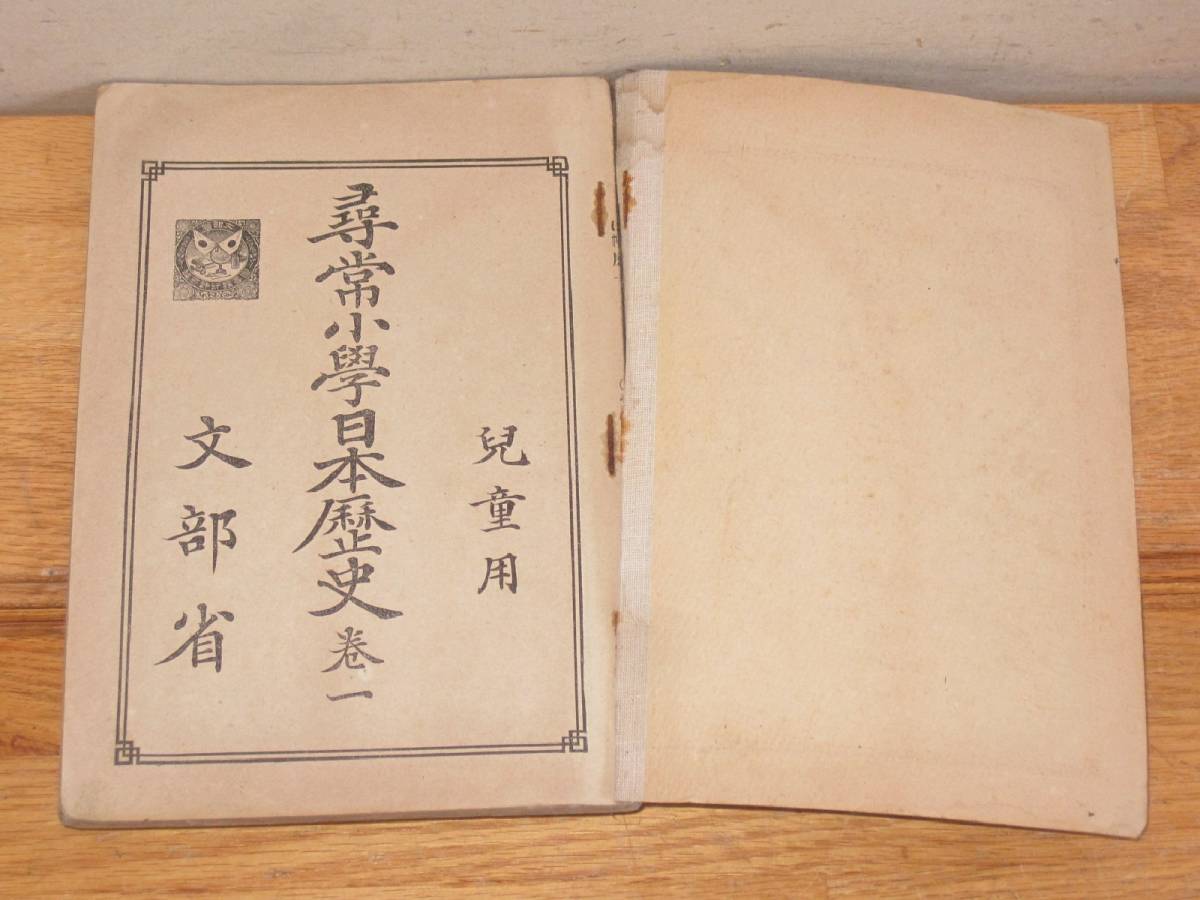 兒童用
尋常小學日本歷史 卷一
文部省